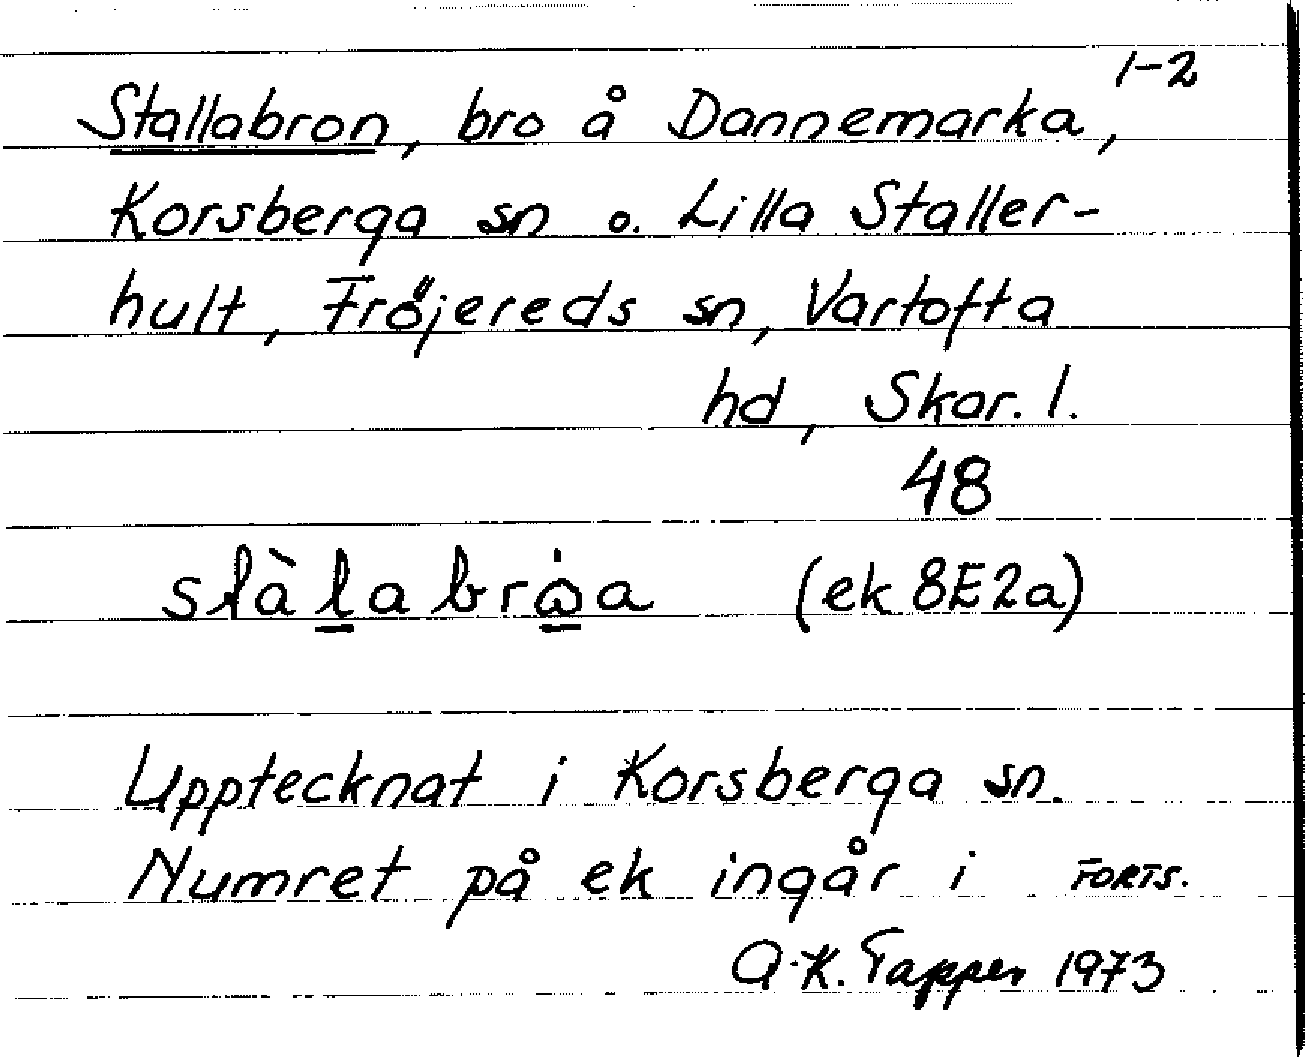 1-2
Stallabron, bro å Dannemarka,
Korsberga sn o. Lilla Staller-
hult, Fröjereds sn, Vartofta
hd, Skar. l.
48
(ek 8E2a)
Upptecknat i Korsberga sn.
Numret på ek ingår i FORTS.
A-K. Tapper 1973